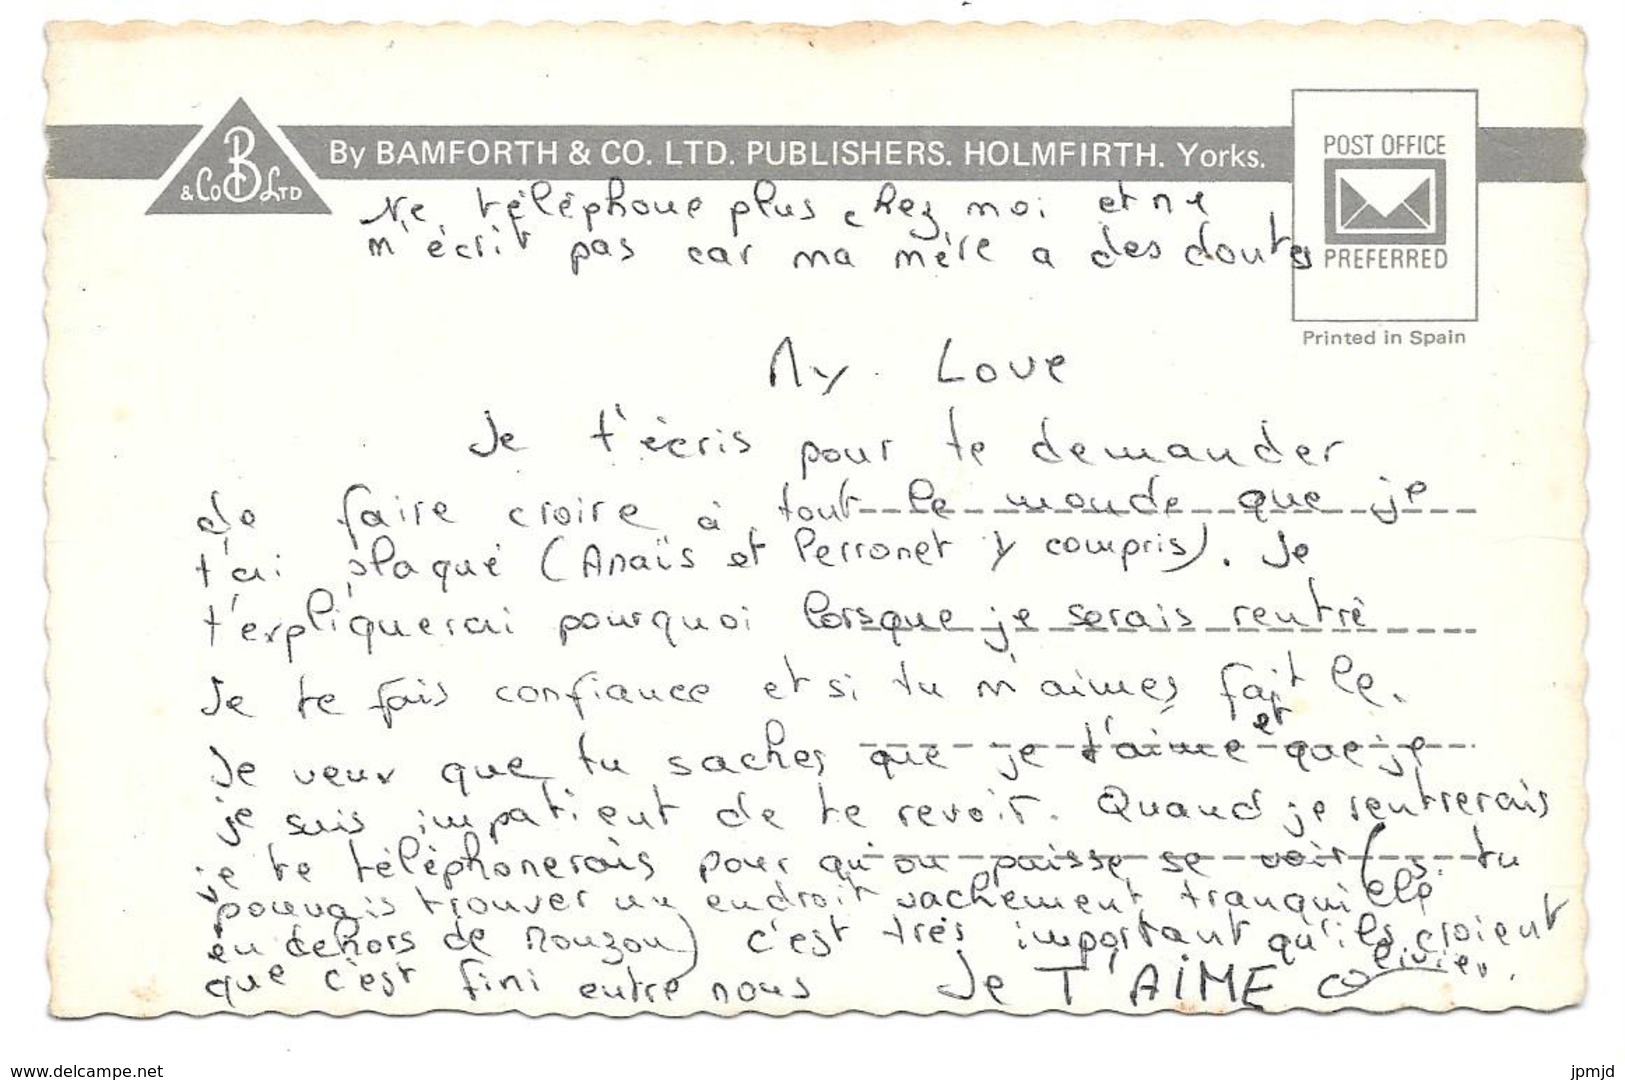 By BAMFORTH & CO. LTD. PUBLISHERS. HOLMFIRTH. Yorks.
B
& Co LTD
POST OFFICE
PREFERRED
Printed in Spain
Ne téléphone plus chez moi et ne
m'écrit pas car ma mère a des doutes
My Love
Je t'écris pour te demander
de faire croire à tout le monde que je
t'ai plaqué (Anaïs et Perronet y compris). Je
t'expliquerai pourquoi lorsque je serais rentré
Je te fais confiance et si tu m'aimes fait le.
Je veux que tu saches que je t'aime et que je
je suis impatient de te revoir. Quand je rentrerais
je te téléphonerais pour qu'on puisse se voir (si tu
pouvais trouver un endroit vachement tranquille
en dehors de Mouzon) c'est très important qu'ils croient
que c'est fini entre nous Je T'AIME Olivier.
www.delcampe.net
jpmjd